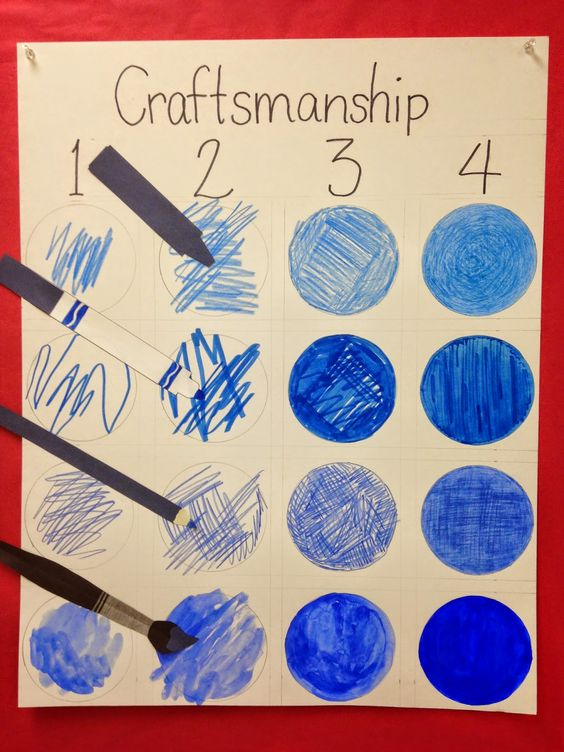 Craftsmanship
1 2 3 4